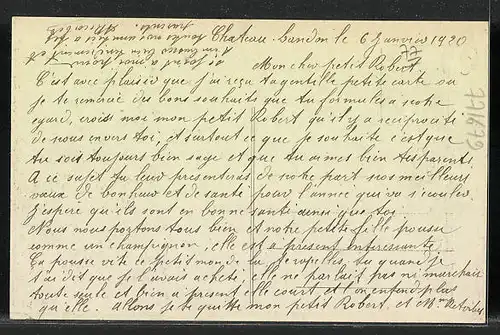 Chateau-Landon le 6 Janvier 1920
Mon cher petit Robert
C'est avec plaisir que j'ai reçu ta gentille petite carte ou
je te remercie des bons souhaits que tu formules a notre
egard, crois moi mon petit Robert qu'il y a réciprocité
de nous envers toi, et surtout ce que je souhaite c'est que
tu sois toujours bien sage et que tu aimes bien tes parents
A ce sujet tu leur presenteras de notre part nos meilleurs
vœux de bonheur et de santé pour l'année qui va s'écouler
j'espère qu'ils sont en bonne santé ainsi que toi
Nous nous portons tous bien et notre petite fille pousse
comme un champignon, elle est a présent intéressante
Ça pousse vite ce petit monde tu te rappelles, tu quand je
t'ai dit que je l'avais acheté, elle ne parlait pas ni marchait
toute seule et bien a présent elle court et on entend plus
qu'elle. Allons je te quitte mon petit Robert, et Mme